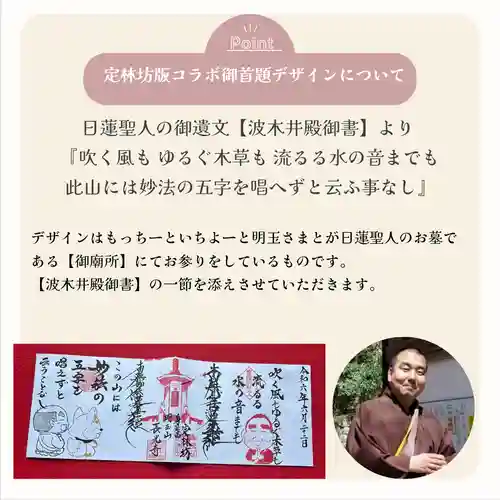 Point
定林坊版コラボ御首題デザインについて
日蓮聖人の御遺文【波木井殿御書】より
『吹く風も ゆるぐ木草も 流るる水の音までも
此山には妙法の五字を唱へずと云ふ事なし』
デザインはもっちーといちよーと明玉さまとが日蓮聖人のお墓で
ある【御廟所】にてお参りをしているものです。
【波木井殿御書】の一節を添えさせていただきます。
令和六年六月二十二日
吹く風もゆるぐ木草も
流るる
水の音までも
定林坊
この山には
妙法の
五字を
唱えずと
云うことなし